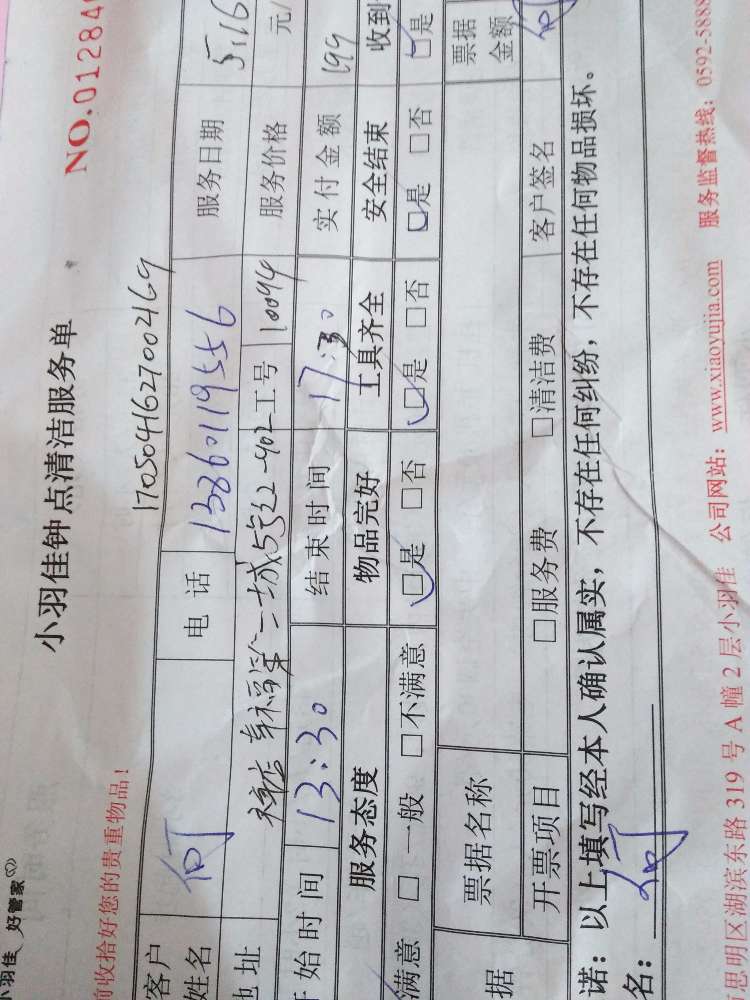 小羽佳 好管家
小羽佳钟点清洁服务单
NO.01284
前收拾好您的贵重物品!
1705041627002469
客户姓名 何 电话 13860119556 服务日期 5.16
地址 幸福第二城5号322-902 工号 10094 服务价格 元/
开始时间 13:30 结束时间 17:30 实付金额 199
服务态度 物品完好 工具齐全 安全结束 收到
满意 □一般 □不满意 □是 □否 □是 □否 □是 □否 □是
据 票据名称 票据金额
开票项目 □服务费 □清洁费 客户签名 何
诺:以上填写经本人确认属实,不存在任何纠纷,不存在任何物品损坏。
名: 何
思明区湖滨东路 319 号 A 幢 2 层小羽佳 公司网站:www.xiaoyujia.com 服务监督热线:0592-5888